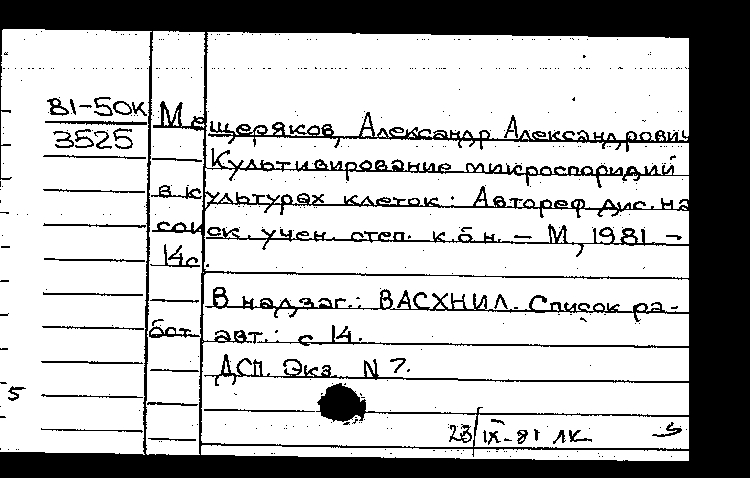 81-50К
3525
Мещеряков, Александр Александрович
Культивирование микроспоридий
в культурах клеток: Автореф дис. на
соиск. учен. степ. к.б.н. — М, 1981 —
14с.
В надзаг.: ВАСХНИЛ. Список ра-
бот авт.: с 14.
ДСП. Экз. N 7.
5
23/IX-81 ЛК